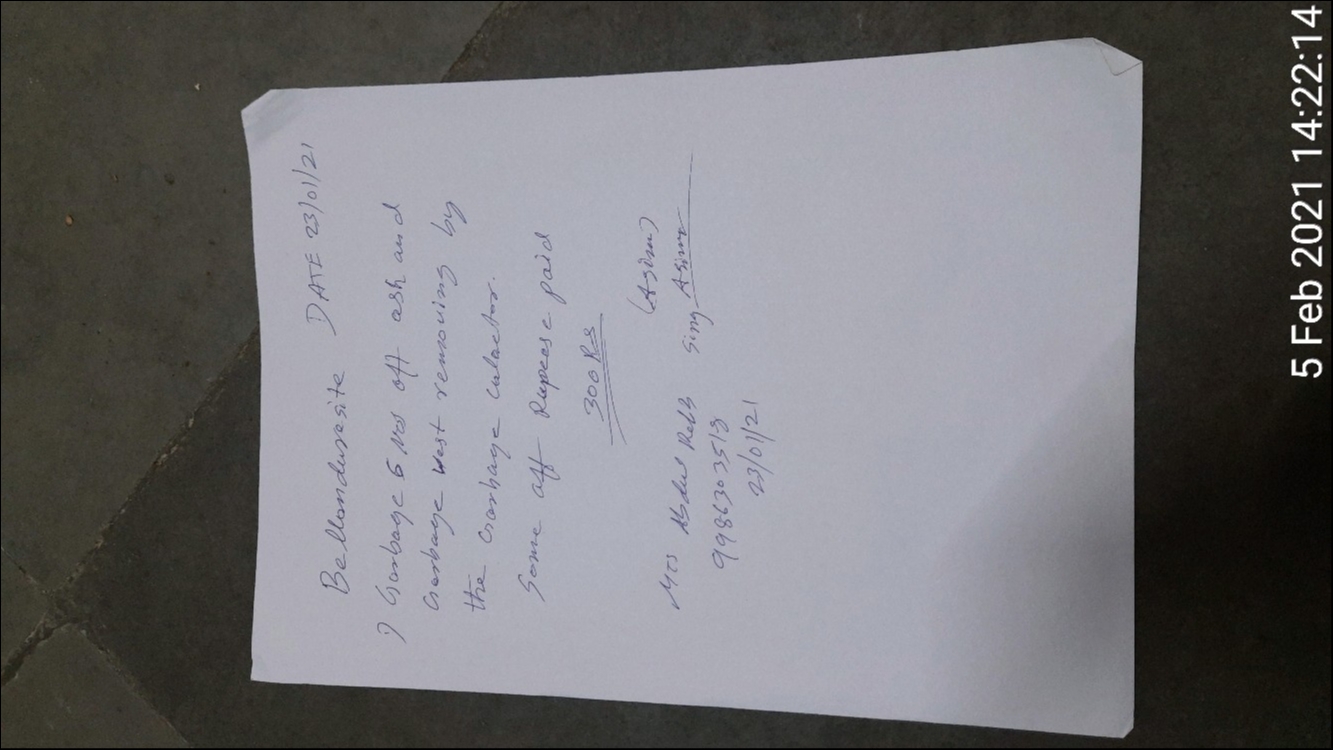 Bellanduresite DATE 23/01/21
1) Garbage 6 Nos off ash and
Garbage West removing by
the Garbage Calactor.
Some off Rupees paid
300 Rs
(Asim)
Sing Asim
Mrs Abdul
9986303513
23/01/21
5 Feb 2021 14:22:14